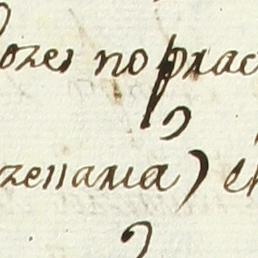 ozes no prac
zenaria) e